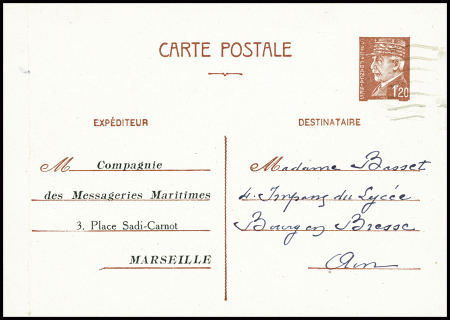 CARTE POSTALE
1,20
EXPÉDITEUR
DESTINATAIRE
M Compagnie
des Messageries Maritimes
3, Place Sadi-Carnot
MARSEILLE
Madame Basset
4. Impass du Lycée
Bourg en Bresse
Ain